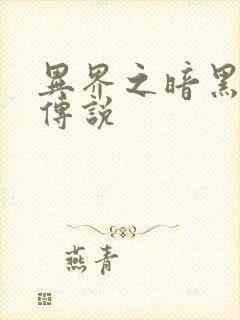 異界之暗黑
傳說
燕青